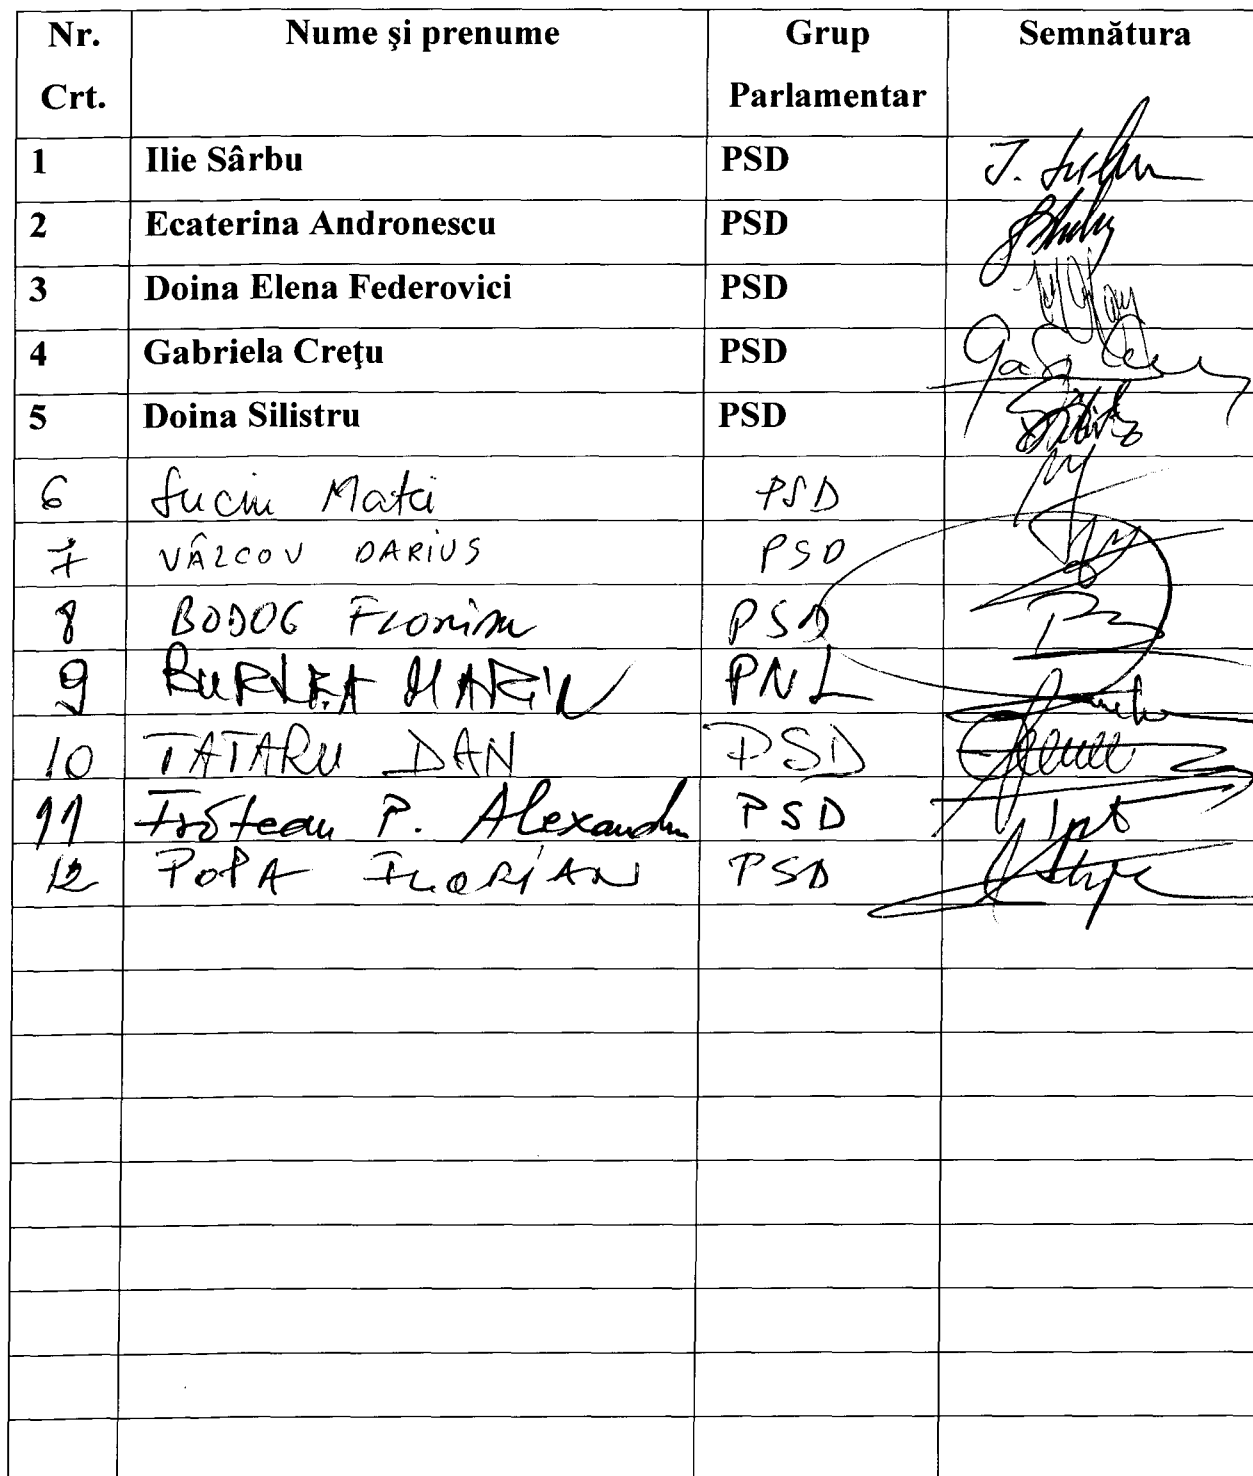 Nr. Crt. Nume şi prenume Grup Parlamentar Semnătura
1 Ilie Sârbu PSD
2 Ecaterina Andronescu PSD
3 Doina Elena Federovici PSD
4 Gabriela Creţu PSD
5 Doina Silistru PSD
6 Suciu Matei PSD
7 VÂLCOV DARIUS PSD
8 BODOG Florian PSD
9 BURLEA MARIN PNL
10 TATARU DAN PSD
11 P. Alexandru PSD
12 POPA FLORIAN PSD